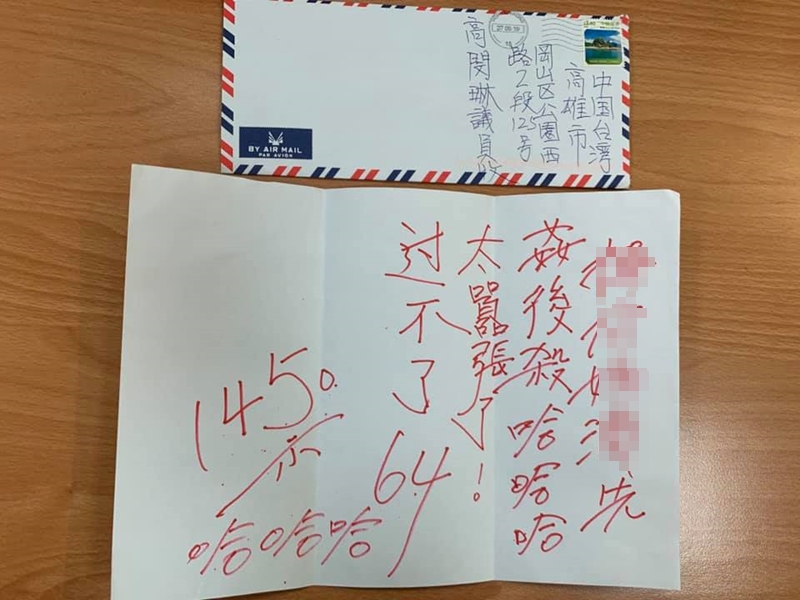 中国台湾
高雄市
岡山区公園西
路2段125号
高閔琳議員收
27 09 19
BY AIR MAIL
PAR AVION
先
姦後殺哈哈哈
太囂張了!
过不了64
1450
哈哈哈